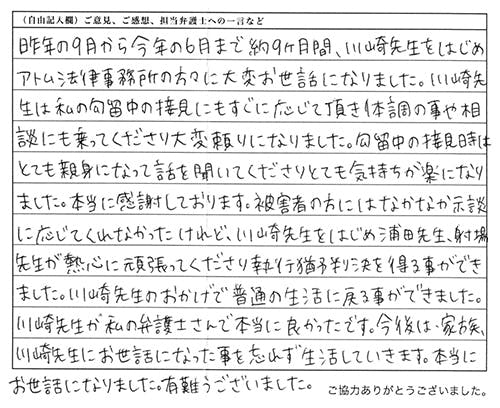 （自由記入欄）ご意見、ご感想、担当弁護士への一言など
昨年の9月から今年の6月まで約9ヶ月間、川崎先生をはじめ
アトム法律事務所の方々に大変お世話になりました。川崎先
生は私の勾留中の接見にもすぐに応じて頂き体調の事や相
談にも乗ってくださり大変頼りになりました。勾留中の接見時は
とても親身になって話を聞いてくださりとても気持ちが楽になり
ました。本当に感謝しております。被害者の方にはなかなか示談
に応じてくれなかったけれど、川崎先生をはじめ浦田先生、射場
先生が熱心に頑張ってくださり執行猶予判決を得る事ができ
ました。川崎先生のおかげで普通の生活に戻る事ができました。
川崎先生が私の弁護士さんで本当に良かったです。今後は、家族、
川崎先生にお世話になった事を忘れず生活していきます。本当に
お世話になりました。有難うございました。
ご協力ありがとうございました。